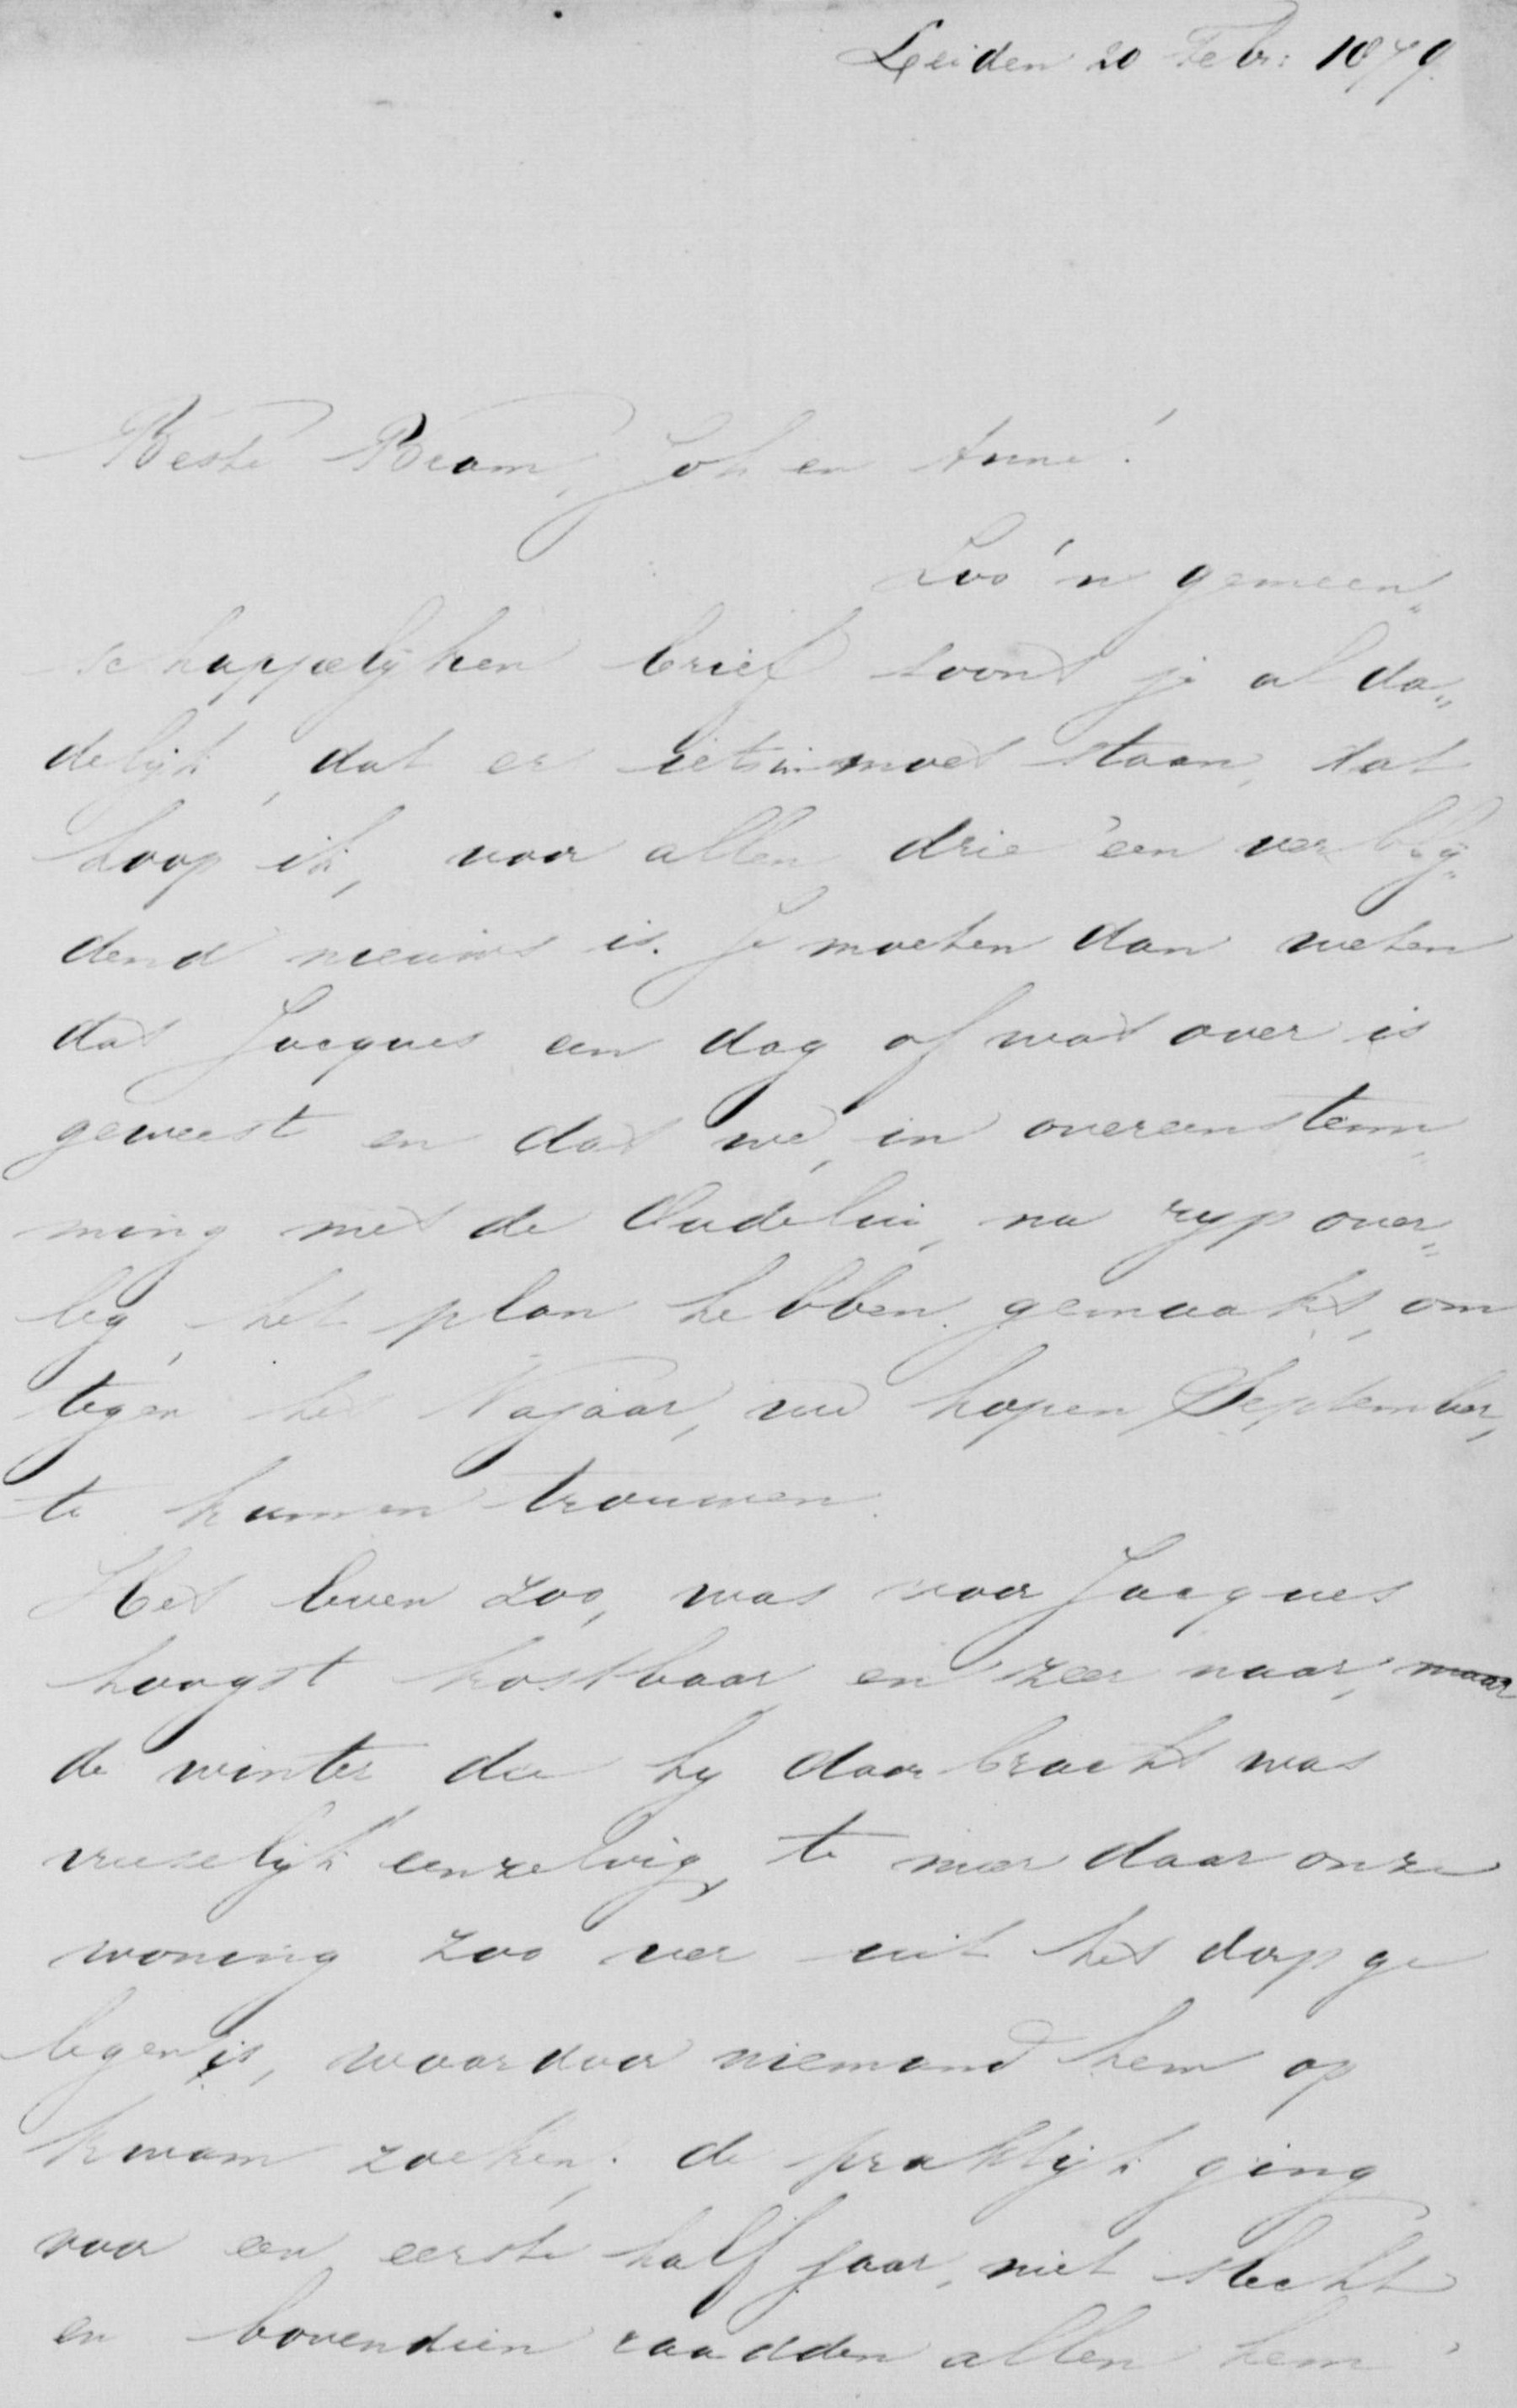 Leiden 20 Febr: 1879.
Beste Bram, Joh en Anne!
Zoo'n gemeen„
schappelijken brief toont je al da„
delijk, dat er iets in moet staan, dat
hoop ik, voor allen drie een verblij„
dend nieuws is. Je moeten dan weten
dat Jacques een dag of wat over is
geweest en dat we, in overeenstem„
ming met de Oudelui, na ryp over„
leg, het plan hebben gemaakt, om
tegen het Najaar, we hopen September,
te kunnen trouwen.
Het leven zoo, was voor Jacques
hoogst kostbaar en zeer naar, maar
de winter die hy daar bracht was
vreeselijk eenzelvig, te meer daar onze
woning zoo ver uit het dorp ge
legen is, waardoor niemand hem op
kwam zoeken; de praktijk ging
voor een eerste half jaar, niet slecht
en bovendien raadden allen hem